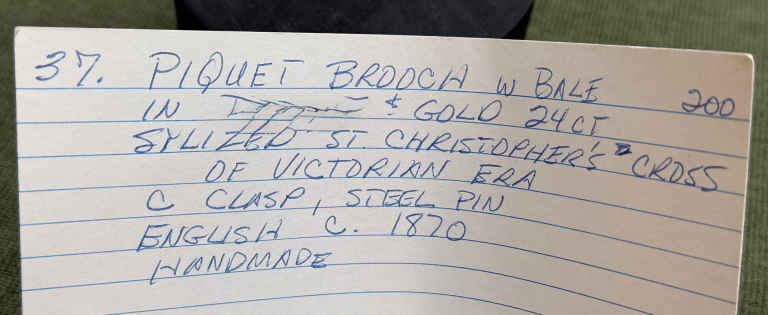 37. PIQUET BROOCH W BALE 200
IN & GOLD 24CT
SYLIZED ST. CHRISTOPHER'S CROSS
OF VICTORIAN ERA
C CLASP, STEEL PIN
ENGLISH C. 1870
HANDMADE